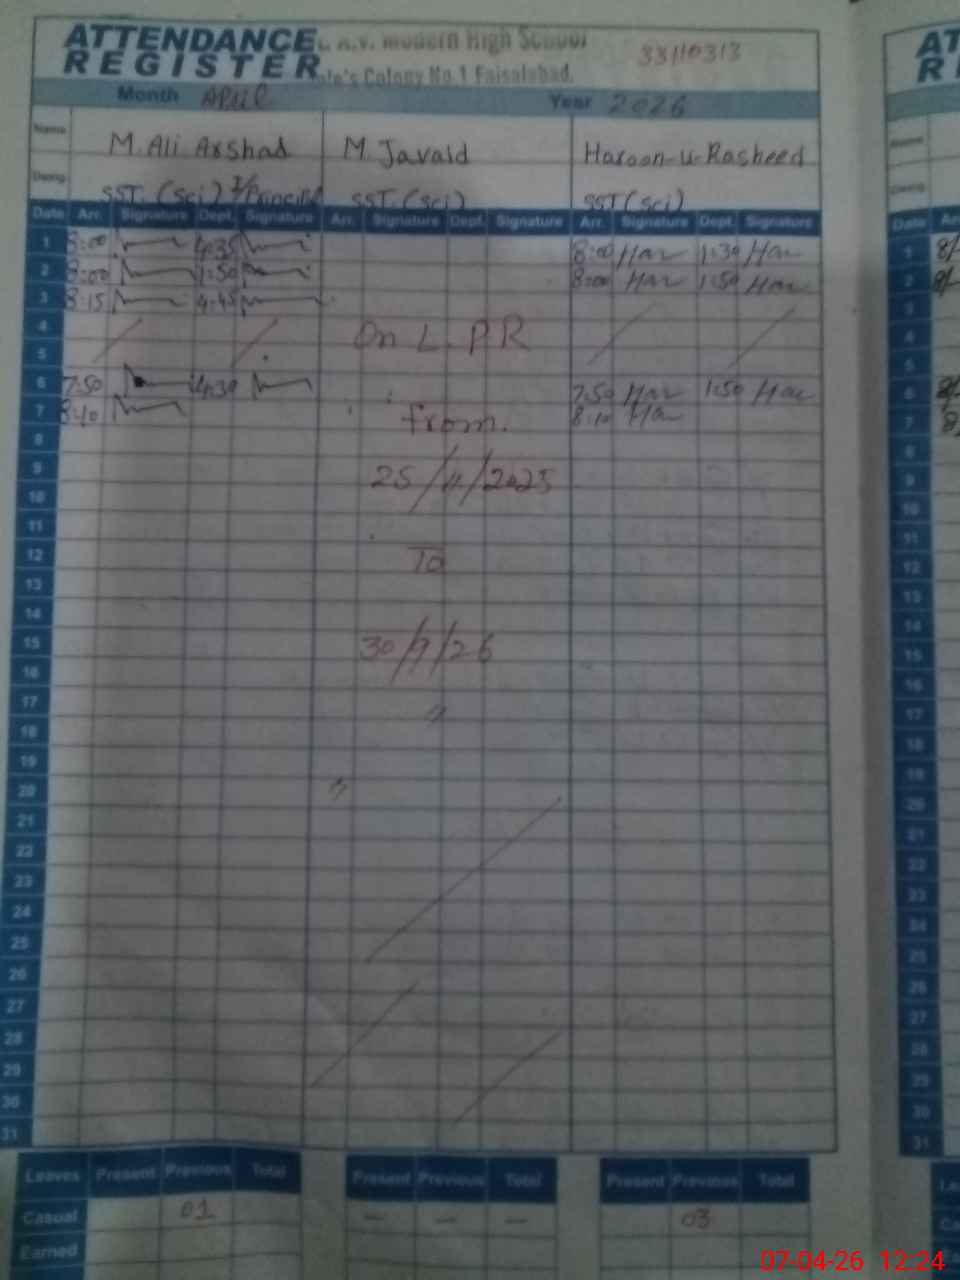 ATTENDANCE REGISTER
A.V. Modern High School
Colony No.1 Faisalabad.
33110313
Month April Year 2026
Name M. Ali Arshad M. Javaid Haroon-u-Rasheed
Desig. SST. (Sci) I/Principal SST. (Sci) SST (Sci)
Date Arr. Signature Dept. Signature Arr. Signature Dept. Signature Arr. Signature Dept. Signature
1 8:00 4:35 8:00 Har 1:30 Har
2 8:00 1:50 8:00 Har 1:50 Har
3 8:15 4:45
4 On L.PR
5
6 7:50 4:30 7:50 Har 1:50 Har
7 8:10 from. 8:10 Har
8
9 25/11/2025
10
11
12 To
13
14
15 30/9/26
16
17 "
18
19
20 "
21
22
23
24
25
26
27
28
29
30
31
Leaves Present Previous Total Present Previous Total Present Previous Total
Casual 01 — — — 03
Earned
07-04-26 12:24